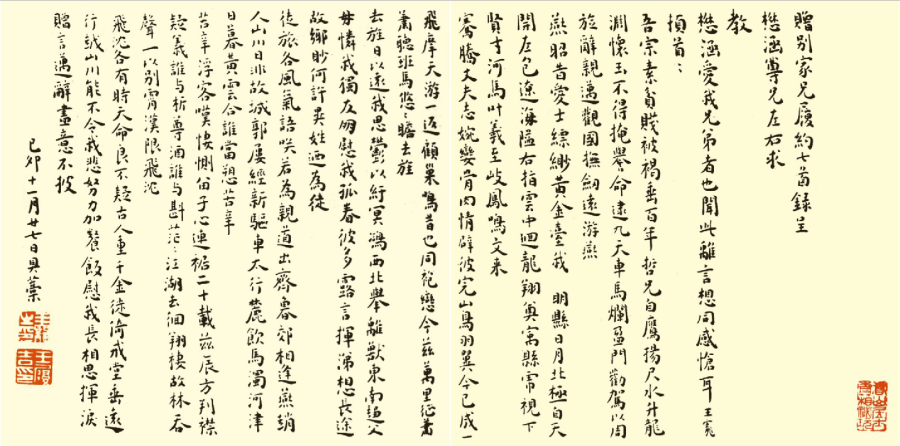 贈别家兄履約七首錄呈
懋涵尊兄左右求
教
懋涵愛我兄弟者也聞此離言想同感愴耳王寵
頓首〻
吾宗素貧賤被褐垂百年哲兄自鷹揚尺水升龍
淵懷玉不得掩譽命逮九天車馬爛盈門勸駕以周
旋辭親邁觀國撫劍遠游燕
燕昭昔愛士縹緲黃金臺我 明縣日月北極自天
開左包遼海隘右指雲中迴龍翔奠寓縣虎視下
賢才河馬叶義至岐鳳鳴文来
騫騰丈夫志婉孌骨肉情辟彼完山鳥羽翼今已成一
飛摩天游一返顧巢鳴昔也同袍戀今茲萬里征蕭
蕭聽班馬悠〻瞻去旌
去旌日以遠我思鬱以紆冥鴻西北舉離獸東南趨父
母憐我獨友朋慰我孤春彼多露言揮涕想長途
故鄉眇何許異姓迺為徒
徒旅各風氣語咲若為親道出齊魯郊相逢燕趙
人山川日非故城郭屢經新驅車太行麓飲馬濁河津
日暮黃雲合誰當愬苦辛
苦辛浮客嘆悽惻留子心連裾二十載茲辰方别襟
疑義誰与析尊酒誰与斟茫〻江湖去徊翔棲故林吞
聲一以别霄漢限飛沈
飛沈各有時天命良不疑古人重千金徒倚戒堂垂遠
行越山川能不令我悲努力加餐飯慰我長相思揮淚
贈言邁辭盡意不披
己卯十一月廿七日具藁